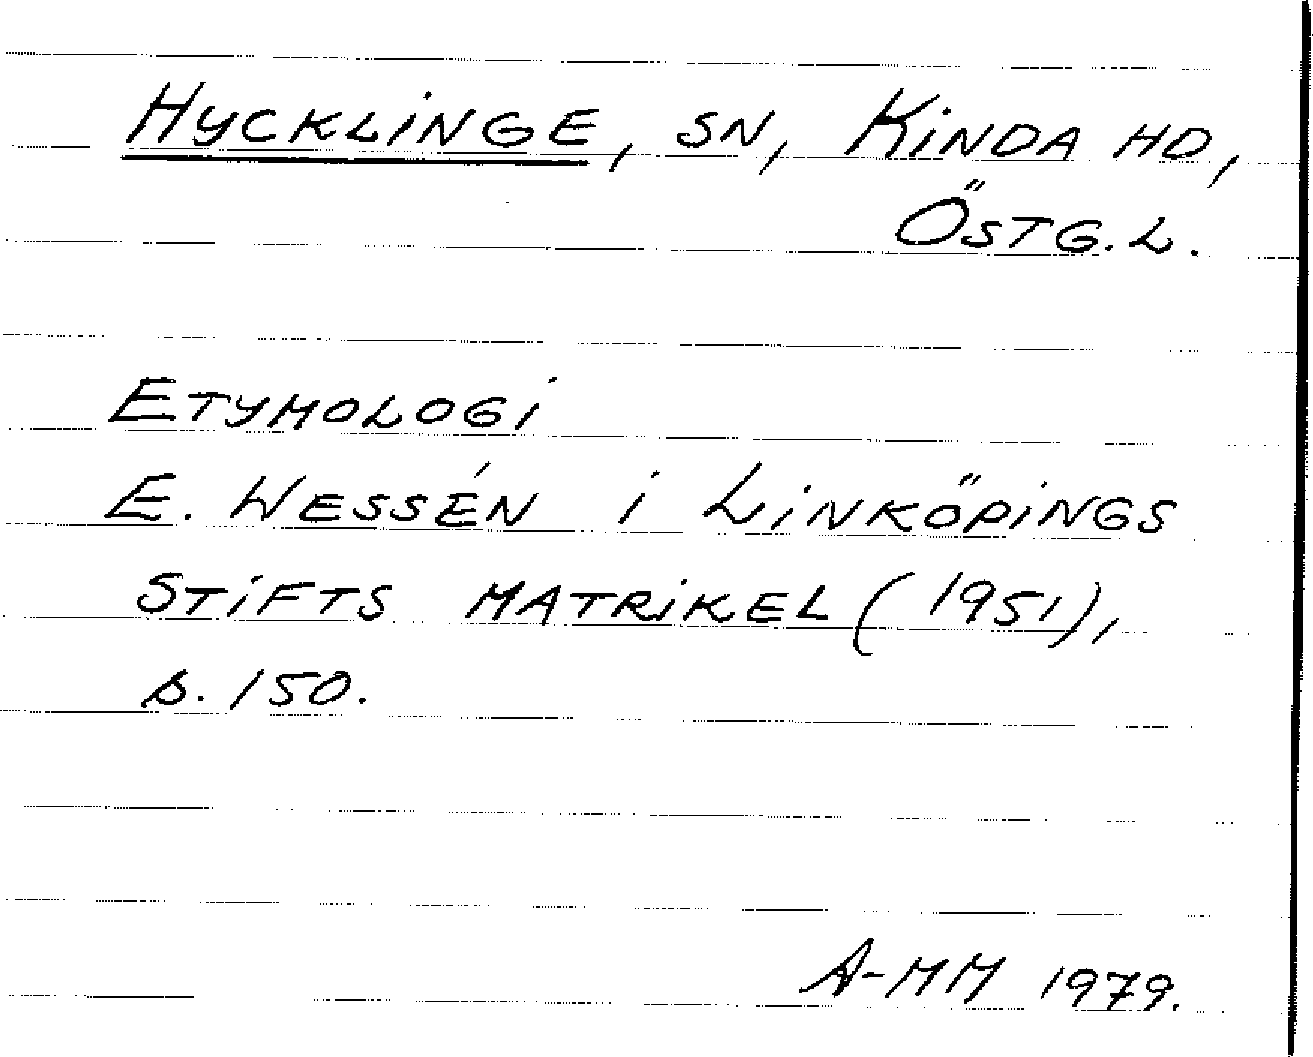 HYCKLINGE, SN, KINDA HD,
ÖSTG. L.
ETYMOLOGI
E. WESSÉN I LINKÖPINGS
STIFTS MATRIKEL (1951),
s. 150.
A-MM 1979.